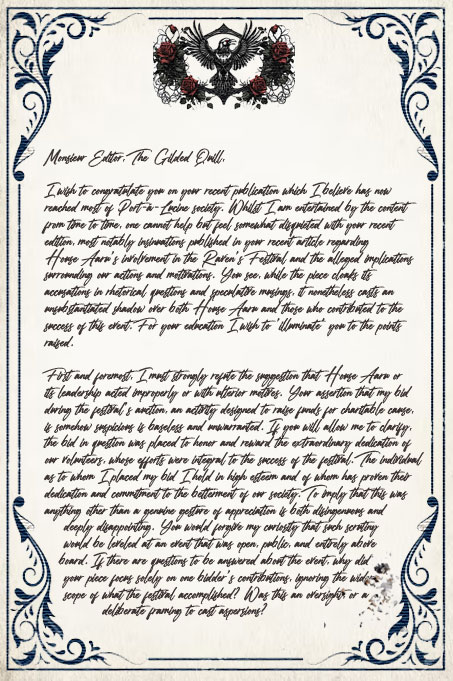 Monsieur Editor, The Gilded Quill,
I wish to congratulate you on your recent publication which I believe has now
reached most of Port-à-Lucine society. Whilst I am entertained by the content
from time to time, one cannot help but feel somewhat disquieted with your recent
edition, most notably insinuations published in your recent article regarding
House Aaru's involvement in the Raven's Festival and the alleged implications
surrounding our actions and motivations. You see, while the piece cloaks its
accusations in rhetorical questions and speculative musings, it nonetheless casts an
unsubstantiated shadow over both House Aaru and those who contributed to the
success of this event. For your education I wish to 'illuminate' you to the points
raised.
First and foremost, I must strongly refute the suggestion that House Aaru or
its leadership acted improperly or with ulterior motives. Your assertion that my bid
during the festival's auction, an activity designed to raise funds for charitable cause,
is somehow suspicious is baseless and unwarranted. If you will allow me to clarify,
the bid in question was placed to honor and reward the extraordinary dedication of
our volunteers, whose efforts were integral to the success of the festival. The individual
as to whom I placed my bid I hold in high esteem and of whom has proven their
dedication and commitment to the betterment of our society. To imply that this was
anything other than a genuine gesture of appreciation is both disingenuous and
deeply disappointing. You would forgive my curiosity that such scrutiny
would be leveled at an event that was open, public, and entirely above
board. If there are questions to be answered about the event, why did
your piece focus solely on one bidder's contributions, ignoring the wider
scope of what the festival accomplished? Was this an oversight or a
deliberate framing to cast aspersions?